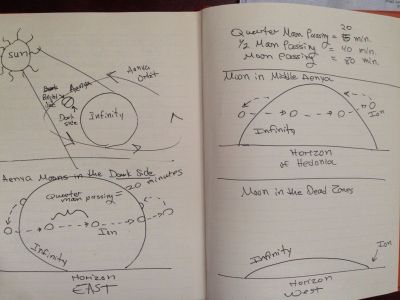 Sun
Aenya
Orbit
Bright
Side
Aenya
Dark
side
Infinity
Aenya Moons in the Dark Side
Quarter
moon passing = 20 minutes
Ion
Infinity
Horizon
EAST
20
Quarter Moon Passing = min.
1/2 Moon Passing = 40 min.
Moon Passing = 80 min.
Moon in Middle Aenya
Ion
Infinity
Horizon
of Hedonia
Moon in the Dead Zones
Infinity
Ion
Horizon
West